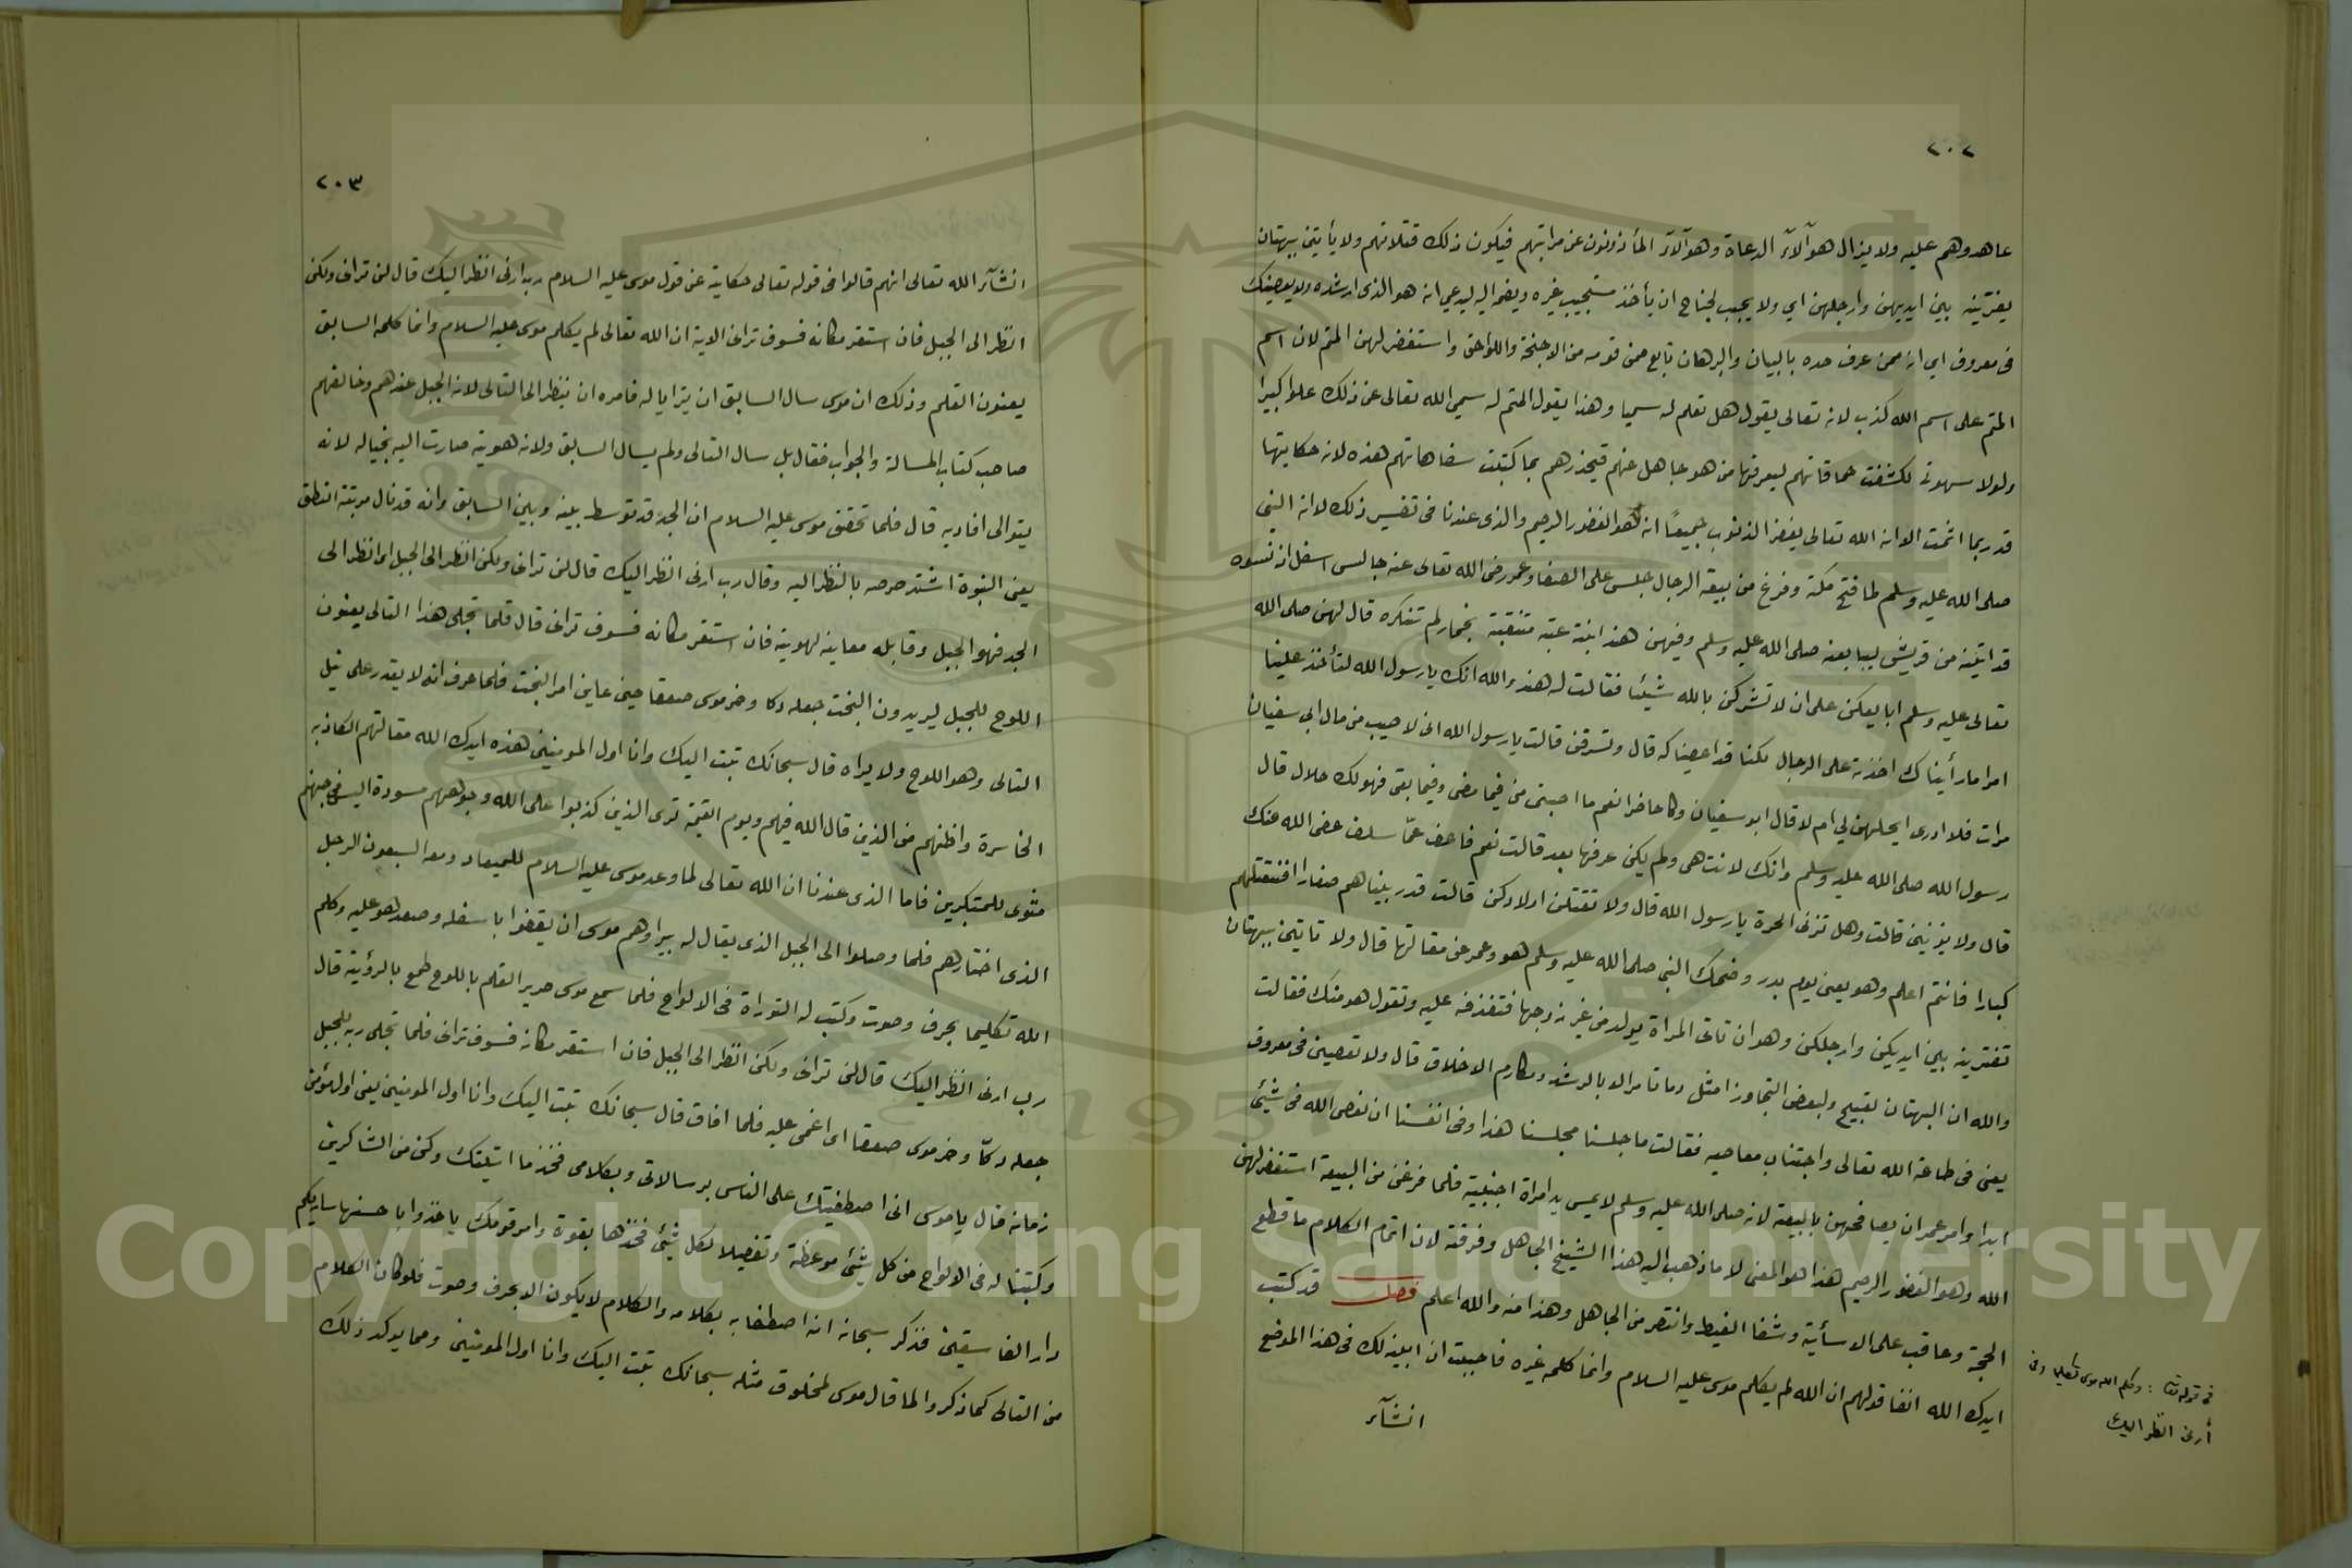 ٢٠٢
عاهدوهم عليه ولا يزال هوآلآء الدعاة وهوآلآء المأذونون عن مراتبهم فيكون ذلك قتلاتهم ولا يأتين ببهتان
يفترينه بين ايديهن وارجلهن اي ولا يجب لجناح ان يأخذ مستجيب غيره ويضمه اليه ليدعي انه هو الذى ارشده ولا يعصينك
فى معروف اي ان ممن عرف حده بالبيان والبرهان تابع ممن قومه من الاجنحة واللواحق واستغفر لهن المتم لان اسم
المتم على اسم الله كذب لانه تعالى يقول هل تعلم له سميا وهذا يقول المتم له سمي الله تعالى عن ذلك علوا كبيرا
ولولا سهوتى لكشفت حماقاتهم ليعرفها من هو جاهل عنهم فيحذرهم بما كتبت سفاهاتهم هذه لانه حكايتها
قد ربما اثمت الا انه الله تعالى يغفر الذنوب جميعًا انه هو الغفور الرحيم والذى عندنا فى تفسير ذلك لانه النبى
صلى الله عليه وسلم لما فتح مكة وفرغ من بيعة الرجال جلس على الصفا وعمر رضى الله تعالى عنه جالس اسفل اذ نسوه
قد اتينه من قريش ليبايعنه صلى الله عليه وسلم وفيهن هند ابنة عتبه متنقبة بخمار لم تنكره قال لهن صلى الله
تعالى عليه وسلم ابايعكن على ان لا تشركن بالله شيئا فقالت له هند والله انك يا رسول الله لتأخذ علينا
امرا ما رأيناك اخذته على الرجال لكنا قد اعصيناكه قال وتسرقن قالت يا رسول الله انى لاصيب من مال ابى سفيان
مرات فلا ادرى ايحلهن لي ام لا قال ابو سفيان وكا حاضرا نعم ما اصبتى من فيما مضى وفيما بقى فهو لك حلال قال
رسول الله صلى الله عليه وسلم وانك لانت هى ولم يكن عرفها بعد قالت نعم فاعف عمّا سلف عفى الله عنك
قال ولا يزنين قالت وهل تزنى الحرة يا رسول الله قال ولا تقتلن اولادكن قالت قد ربيناهم صغارا افنقتلهم
كبارا فانتم اعلم وهو يعنى يوم بدر وضحك النبى صلى الله عليه وسلم هو وعمر عن مقالتها قال ولا تاتين ببهتان
تفترينه بين ايديكن وارجلكن وهو ان تاتى المراة بولد من غير زوجها فتقذفه عليه وتقول هو منك فقالت
والله ان البهتان لقبيح ولبعض التجاوز امثل وما تامر الا بالرشد ومكارم الاخلاق قال ولا تعصين فى معروف
يعنى فى طاعة الله تعالى واجتناب معاصيه فقالت ما جلسنا مجلسنا هذا وفى انفسنا ان نعصى الله فى شيئ
ابدا وامر عمر ان يصافحهن بالبيعة لانه صلى الله عليه وسلم لا يمس يد امراة اجنبية فلما فرغن من البيعة استغفر لهن
الله وهو الغفور الرحيم هذا هو المعنى لا ما ذهب اليه هذا الشيخ الجاهل وفرقته لان اتمام الكلام ما قطع
الحجة وعاقب على الاسأية وشفا الغيظ وانتصر من الجاهل وهذا منه والله اعلم فصل قد كتب
ايدك الله انفا قولهم ان الله لم يكلم موسى عليه السلام وانما كلمه غيره فاحببت ان ابينه لك فى هذا الموضع
انشآء
فى قوله تعا : وكلم الله موسى تكليما وفى
أرنى انظر اليك
٢٠٣
انشآء الله تعالى انهم قالوا فى قوله تعالى حكاية عن قول موسى عليه السلام رب ارنى انظر اليك قال لن ترانى ولكن
انظر الى الجبل فان استقر مكانه فسوف ترانى الاية ان الله تعالى لم يكلم موسى عليه السلام وانما كلمه السابق
يعنون القلم وذلك ان موسى سال السابق ان يترايا له فامره ان ينظر الى التالى لانه الجبل عندهم وخالفهم
صاحب كتاب المسالة والجواب فقال بل سال التالى ولم يسال السابق ولانه هويته صارت اليه بخياله لانه
يتوالى افاديه قال فلما تحقق موسى عليه السلام ان الجد قد توسط بينه وبين السابق وانه قد نال مرتبة النطق
يعنى النبوة اشتد حرصه بالنظر اليه وقال رب ارنى انظر اليك قال لن ترانى ولكن انظر الى الجبل اى انظر الى
الجد فهو الجبل وقابله معاينه لهويته فان استقر مكانه فسوف ترانى قال فلما تجلى هذا التالى يعنون
اللوح للجبل ليريدون البخت جعله دكا وخر موسى صعقا حين عاين امر البخت فلما عرف انه لا يقدر على نيل
التالى وهو اللوح ولا يراه قال سبحانك تبت اليك وانا اول المومنين هذه ايدك الله مقالتهم الكاذبه
الخاسرة واظنهم من الذين قال الله فيهم ويوم القيمة ترى الذين كذبوا على الله وجوههم مسودة اليس فى جهنم
مثوى للمتكبرين فاما الذى عندنا ان الله تعالى لما وعد موسى عليه السلام للميعاد ومعه السبعون الرجل
الذى اختارهم فلما وصلوا الى الجبل الذى يقال له بيرا وهم موسى ان يقفوا باسفله وصعد هو عليه وكلم
الله تكليما بحرف وصوت وكتب له التوراة فى الالواح فلما سمع موسى صرير القلم باللوح طمع بالرؤية قال
رب ارنى انظر اليك قال لن ترانى ولكن انظر الى الجبل فان استقر مكانه فسوف ترانى فلما تجلى ربه للجبل
جعله دكّا وخر موسى صعقا اى اغمى عليه فلما افاق قال سبحانك تبت اليك وانا اول المومنين يعنى اول مؤمن
زمانه قال يا موسى انى اصطفيتك على الناس برسالاتى وبكلامى فخذ ما اتيتك وكن من الشاكرين
وكتبنا له فى الالواح من كل شيئ موعظة وتفصيلا لكل شيئ فخذها بقوة وامر قومك ياخذوا باحسنها ساريكم
دار الفاسقين فذكر سبحانه انه اصطفا به بكلامه والكلام لا يكون الا بحرف وصوت فلو كان الكلام
من التالى كما ذكروا لما قال موسى لمخلوق مثله سبحانك تبت اليك وانا اول المومنين ومما يوكد ذلك
Copyright © King Saud University
1957